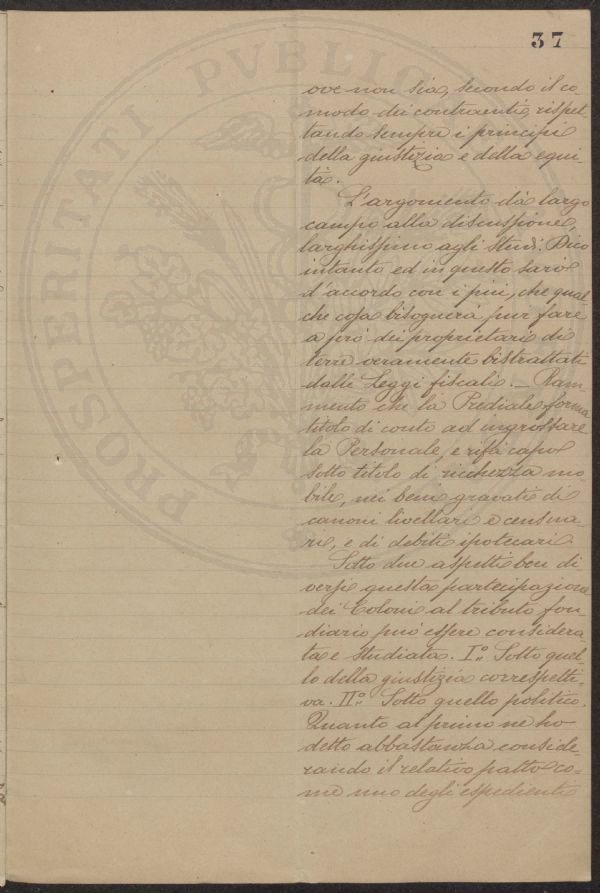 37
ove non sia, secondo il co
modo dei contraenti, rispet
tando sempre i principi
della giustizia e della equi-
tà.
L'argomento dà largo
campo alla discussione,
larghissimo agli studi. Dico
intanto ed in questo sarò
d'accordo con i più, che qual
che cosa bisognerà pur fare
a prò dei proprietari di
terre veramente bistrattati
dalle Leggi fiscali. — Ram
mento che la Prediale forma
titolo di conto ad ingrossare
la Personale, e rifà capo
sotto titolo di ricchezza mo
bile, nei beni gravati di
canoni livellari e censua
ri, e di debiti ipotecari.
Sotto due aspetti ben di
versi questa partecipazione
dei Coloni al tributo fon
diario può essere considera
ta e studiata. I.º Sotto quel
lo della giustizia correspetti-
va. II.º Sotto quello politico.
Quanto al primo ne ho
detto abbastanza conside-
rando il relativo patto co=
me uno degli espedienti
PROSPERITATI PVBLIC